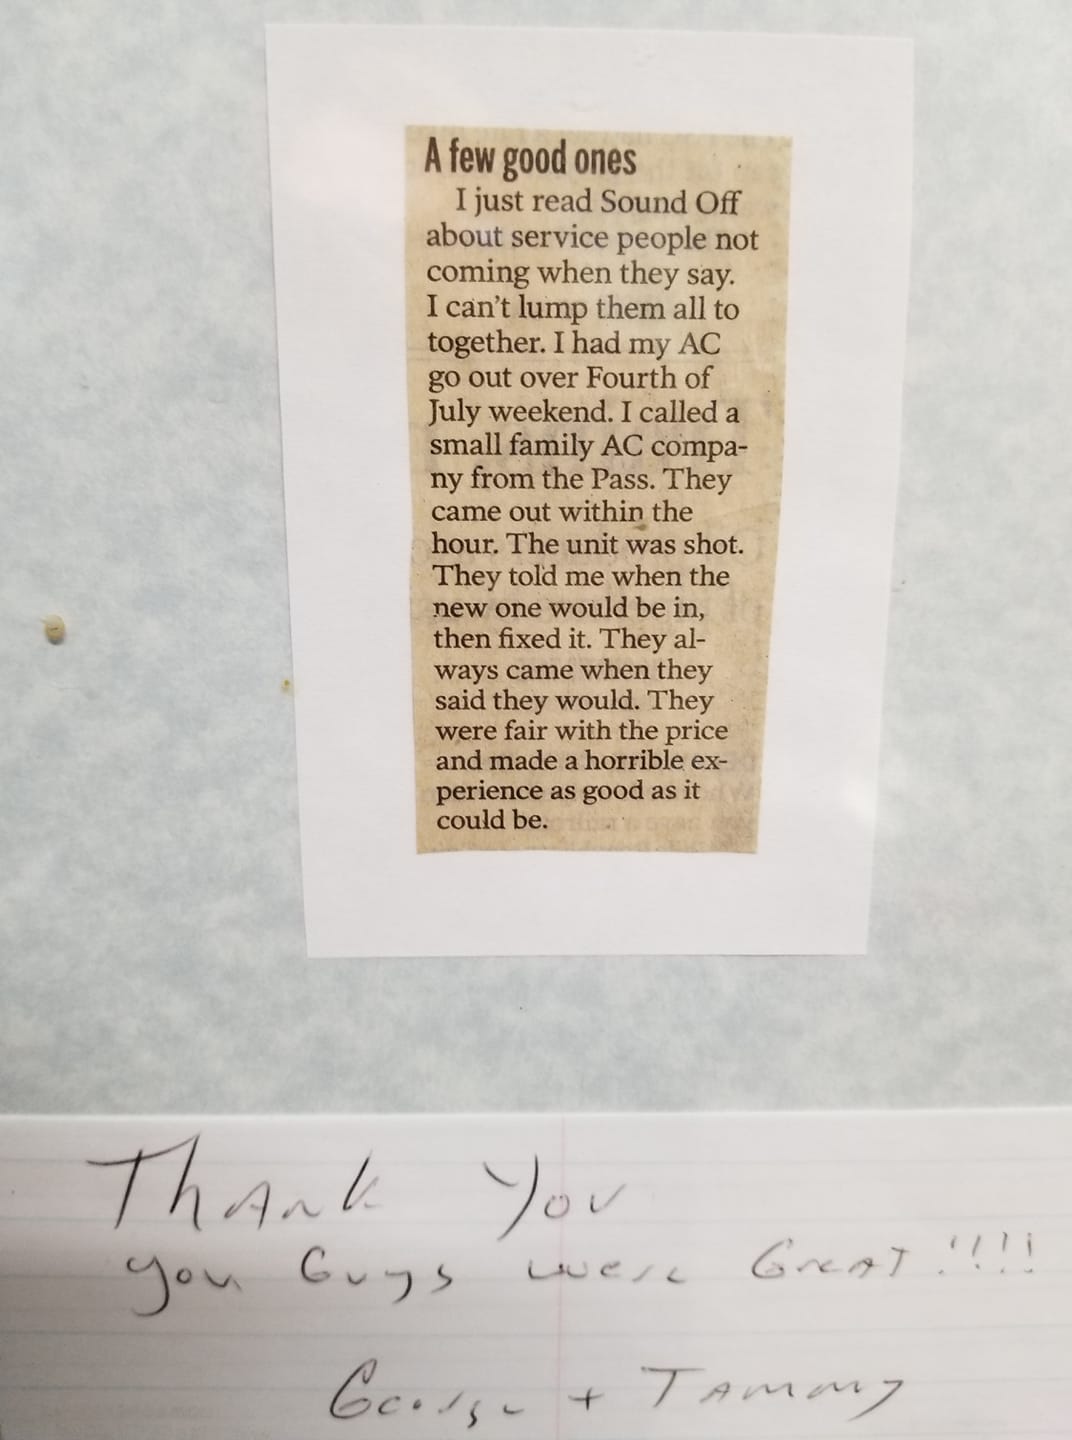 A few good ones
I just read Sound Off
about service people not
coming when they say.
I can't lump them all to
together. I had my AC
go out over Fourth of
July weekend. I called a
small family AC compa-
ny from the Pass. They
came out within the
hour. The unit was shot.
They told me when the
new one would be in,
then fixed it. They al-
ways came when they
said they would. They
were fair with the price
and made a horrible ex-
perience as good as it
could be.
Thank You
you Guys were Great!!!!
George + Tammy